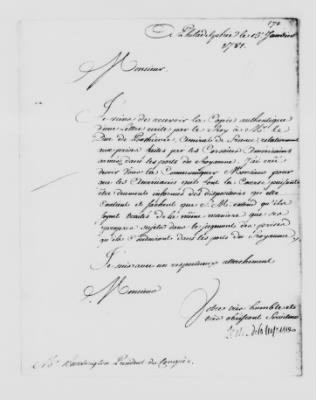 A Philadelphie le 13 Janvier
1781.
Monsieur
Je viens de recevoir la Copie authentique
d'une lettre écrite par le Roy à Mr. le
Duc de Penthievre, Amiral de France, relativement
aux prises faites par les Corsaires Américains
armés dans les ports du Royaume. J'ai crû
devoir vous la Communiquer Monsieur pour
que les Américains qui font la Course puissent
être dument informés des dispositions qui
contient et sachent que S. M. entend qu'ils
soyent traités de la même manière que ses
propres sujets dans le jugement des prises
qu'ils conduiront dans les ports du Royaume.
Je suis avec un respectueux attachement
Monsieur
Votre très humble et
très obéissant Serviteur
le Ch. de la Luzerne
Mr. Huntington Président du Congrès.